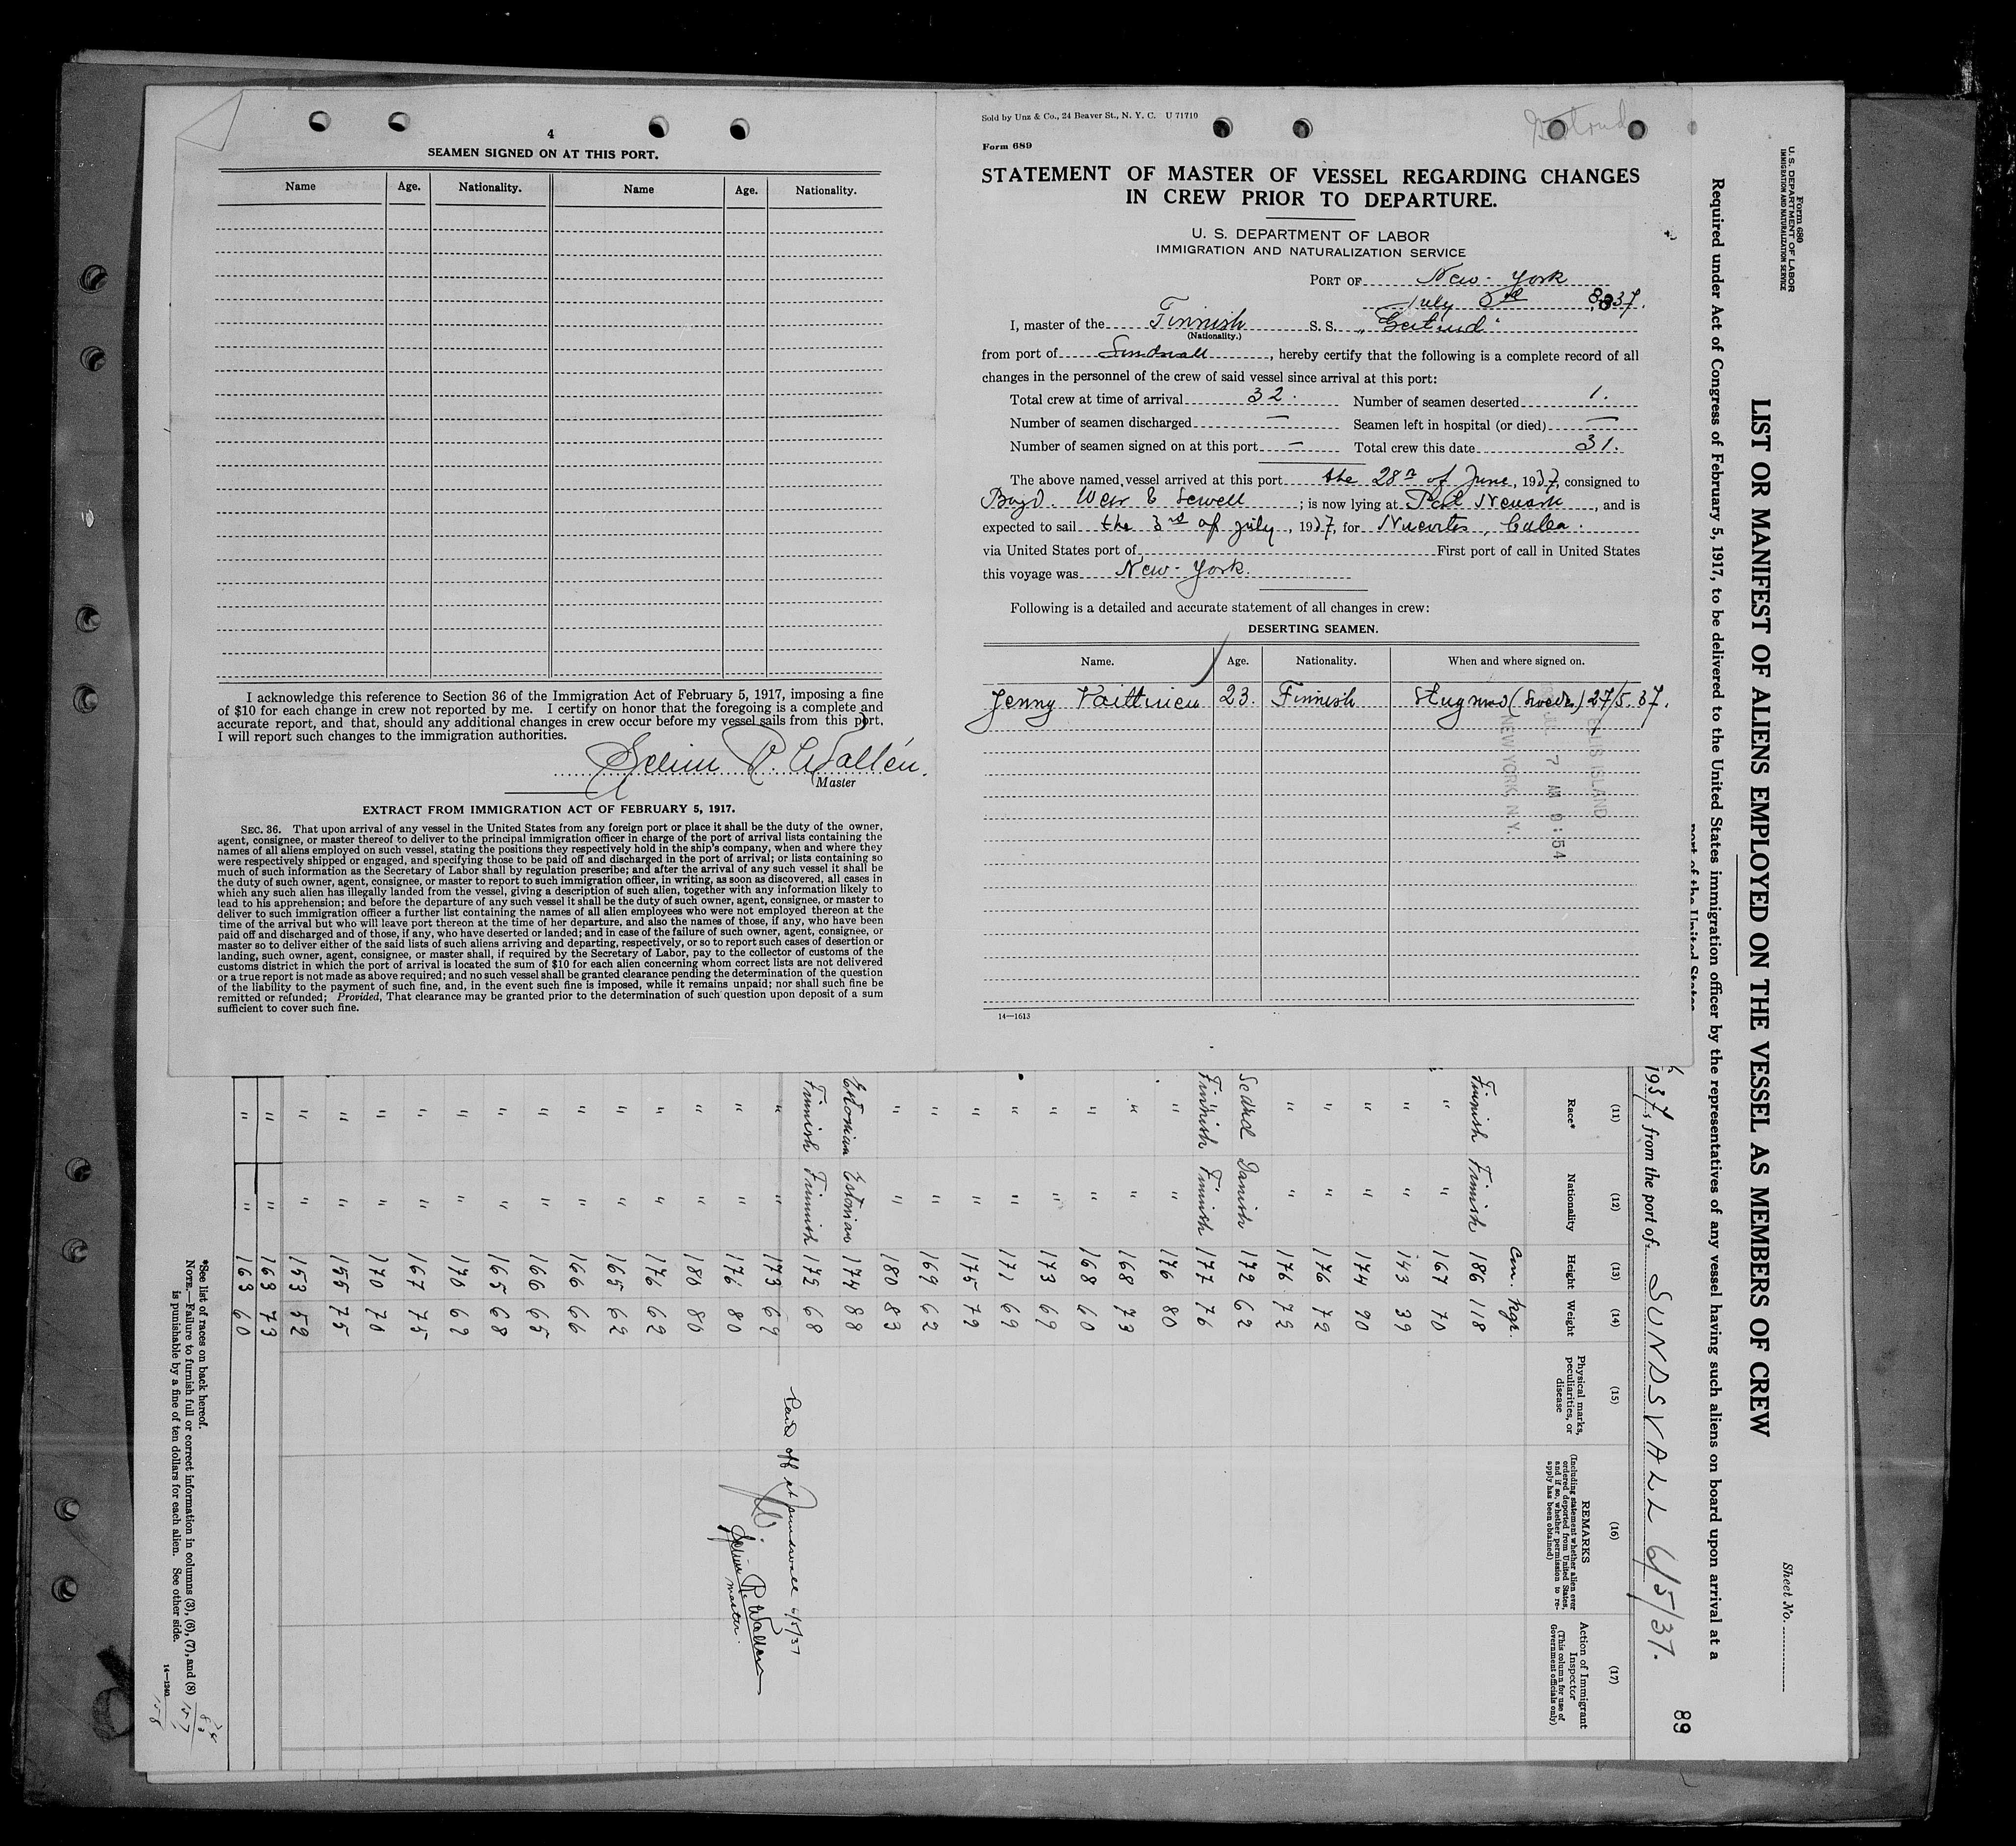 4
SEAMEN SIGNED ON AT THIS PORT.
Name Age. Nationality. Name Age. Nationality.
I acknowledge this reference to Section 36 of the Immigration Act of February 5, 1917, imposing a fine
of $10 for each change in crew not reported by me. I certify on honor that the foregoing is a complete and
accurate report, and that, should any additional changes in crew occur before my vessel sails from this port,
I will report such changes to the immigration authorities.
Selim R. Wallén.
Master
EXTRACT FROM IMMIGRATION ACT OF FEBRUARY 5, 1917.
SEC. 36. That upon arrival of any vessel in the United States from any foreign port or place it shall be the duty of the owner,
agent, consignee, or master thereof to deliver to the principal immigration officer in charge of the port of arrival lists containing the
names of all aliens employed on such vessel, stating the positions they respectively hold in the ship's company, when and where they
were respectively shipped or engaged, and specifying those to be paid off and discharged in the port of arrival; or lists containing so
much of such information as the Secretary of Labor shall by regulation prescribe; and after the arrival of any such vessel it shall be
the duty of such owner, agent, consignee, or master to report to such immigration officer, in writing, as soon as discovered, all cases in
which any such alien has illegally landed from the vessel, giving a description of such alien, together with any information likely to
lead to his apprehension; and before the departure of any such vessel it shall be the duty of such owner, agent, consignee, or master to
deliver to such immigration officer a further list containing the names of all alien employees who were not employed thereon at the
time of the arrival but who will leave port thereon at the time of her departure, and also the names of those, if any, who have been
paid off and discharged and of those, if any, who have deserted or landed; and in case of the failure of such owner, agent, consignee, or
master so to deliver either of the said lists of such aliens arriving and departing, respectively, or so to report such cases of desertion or
landing, such owner, agent, consignee, or master shall, if required by the Secretary of Labor, pay to the collector of customs of the
customs district in which the port of arrival is located the sum of $10 for each alien concerning whom correct lists are not delivered
or a true report is not made as above required; and no such vessel shall be granted clearance pending the determination of the question
of the liability to the payment of such fine, and, in the event such fine is imposed, while it remains unpaid; nor shall such fine be
remitted or refunded; Provided, That clearance may be granted prior to the determination of such question upon deposit of a sum
sufficient to cover such fine.
Sold by Unz & Co., 24 Beaver St., N. Y. C. U 71710
Form 689
STATEMENT OF MASTER OF VESSEL REGARDING CHANGES
IN CREW PRIOR TO DEPARTURE.
U. S. DEPARTMENT OF LABOR
IMMIGRATION AND NATURALIZATION SERVICE
PORT OF New-York
July 37.
I, master of the Finnish S. S. "Gertrud"
(Nationality.)
from port of Sundsvall, hereby certify that the following is a complete record of all
changes in the personnel of the crew of said vessel since arrival at this port:
Total crew at time of arrival 32. Number of seamen deserted 1.
Number of seamen discharged — Seamen left in hospital (or died) —
Number of seamen signed on at this port — Total crew this date 31.
The above named vessel arrived at this port the 28th of June, 1937, consigned to
Boyd. Weir & Sewell; is now lying at Port Newark, and is
expected to sail the 3rd of july, 1937, for Nuevitas, Cuba.
via United States port of First port of call in United States
this voyage was New-York.
Following is a detailed and accurate statement of all changes in crew:
DESERTING SEAMEN.
Name. Age. Nationality. When and where signed on.
Jenny 23. Finnish 27/5.37.
ELLIS ISLAND
JUL 7 AM 9:54
NEW YORK N.Y.
14—1613
Form 680
U. S. DEPARTMENT OF LABOR
IMMIGRATION AND NATURALIZATION SERVICE
Sheet No.
LIST OR MANIFEST OF ALIENS EMPLOYED ON THE VESSEL AS MEMBERS OF CREW
Required under Act of Congress of February 5, 1917, to be delivered to the United States immigration officer by the representatives of any vessel having such aliens on board upon arrival at a
port of the United States
89
1937, from the port of SUNDSVALL 6/5/37.
(11) (12) (13) (14) (15) (16) (17)
Race* Nationality Height Weight Physical marks, peculiarities, or disease REMARKS (Including statement whether alien ever ordered deported from United States, and if so, whether permission to reapply has been obtained) Action of Immigrant Inspector (This column for use of Government officials only)
Cm. Kgr.
Finnish Finnish 186 118
" " 167 70
" " 143 39
" " 174 90
" " 176 79
" " 176 75
Scand Danish 172 62
Finnish Finnish 177 76
" " 176 80
" " 168 73
" " 168 60
" " 173 69
" " 171 69
" " 175 79
" " 169 62
" " 180 83
Estonian Estonian 174 88
Finnish Finnish 175 68
" " 173 69 Paid off at Sundsvall 6/5/37
" " 176 80 Selim R. Wallén
master.
" " 180 80
" " 176 62
" " 165 62
" " 166 66
" " 166 65
" " 165 68
" " 170 69
" " 167 75
" " 170 70
" " 155 75
" " 153 52
" " 163 73
" " 163 60
*See list of races on back hereof.
NOTE.—Failure to furnish full or correct information in columns (3), (6), (7), and (8)
is punishable by a fine of ten dollars for each alien. See other side.
14—1240